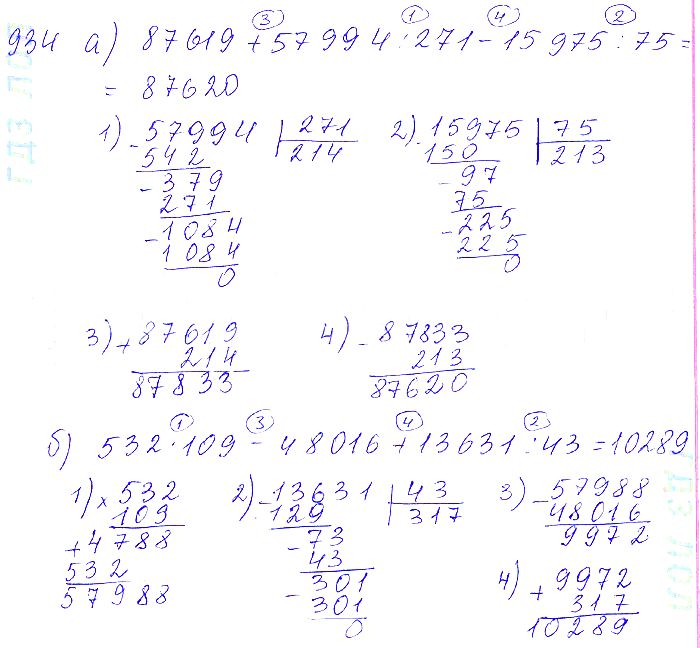 934 а) 87619 + 57994 : 271 - 15975 : 75 =
③ ① ④ ②
= 87620
1) - 57994 | 271
542 214
- 379
271
- 1084
1084
0
2) - 15975 | 75
150 213
- 97
75
- 225
225
0
3) + 87619
214
87833
4) - 87833
213
87620
① ③ ④ ②
б) 532 · 109 - 48016 + 13631 : 43 = 10289
1) × 532
109
+ 4788
532
57988
2) - 13631 | 43
129 317
- 73
43
- 301
301
0
3) - 57988
48016
9972
4) + 9972
317
10289